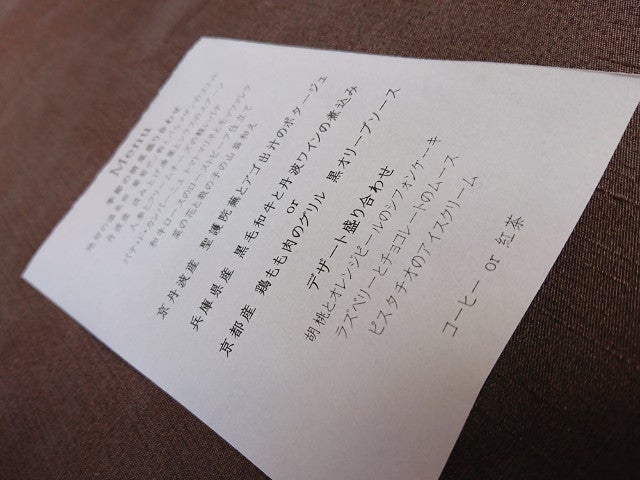 Menu
季節の前菜盛り合わせ
和牛ロースのローストビーフ仕立て
菜の花と数の子の山葵和え
京丹波産 聖護院蕪とアゴ出汁のポタージュ
兵庫県産 黒毛和牛と丹波ワインの煮込み
or
京都産 鶏もも肉のグリル 黒オリーブソース
デザート盛り合わせ
胡桃とオレンジピールのシフォンケーキ
ラズベリーとチョコレートのムース
ピスタチオのアイスクリーム
コーヒー or 紅茶